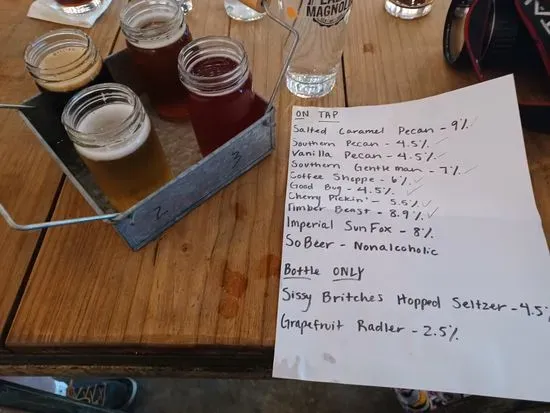 LAZY
MAGNOLIA
ON TAP
Salted Caramel Pecan - 9% ✓
Southern Pecan - 4.5% ✓
Vanilla Pecan - 4.5% ✓
Southern Gentleman - 7% ✓
Coffee Shoppe - 6% ✓
Good Bug - 4.5% ✓
Cherry Pickin' - 5.5% ✓
Timber Beast - 8.9% ✓
Imperial Sun Fox - 8%
SoBeer - Nonalcoholic
Bottle ONLY
Sissy Britches Hopped Seltzer - 4.5%
Grapefruit Radler - 2.5%
2
3